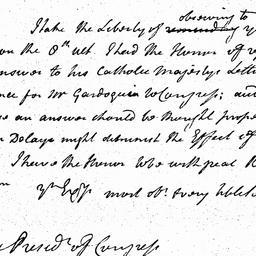 observing to
I take the Liberty of reminding y
on the 8th ult. I had the Honor of
answer to his Catholic Majestys Lette
nce for Mr Gardoqui to Congress; and
an answer should be thought prope
Delays might diminish the Effect of
I have the Honor to be with great R
Yr Excys most obt & very hble
Presidt of Congress